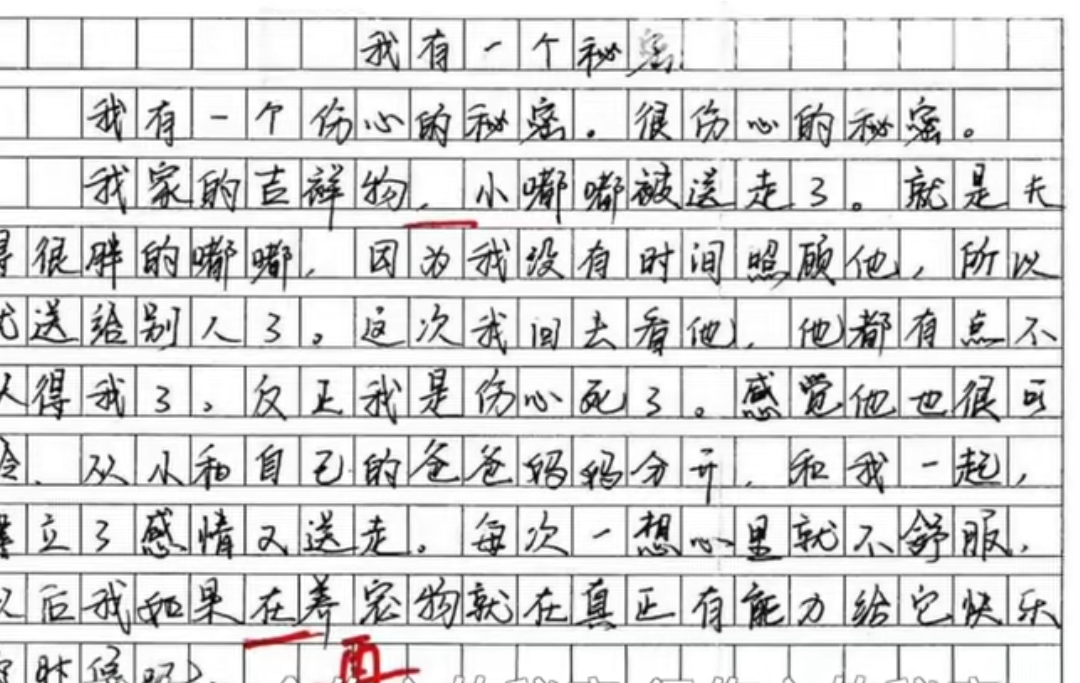 我有一个秘密
我有一个伤心的秘密。很伤心的秘密。
我家的吉祥物，小嘟嘟被送走了。就是天
很胖的嘟嘟，因为我没有时间照顾他，所以
送给别人了。这次我回去看他，他都有点不
得我了。反正我是伤心死了。感觉他也很可
从小和自己的爸爸妈妈分开，和我一起，
立了感情又送走。每次一想心里就不舒服，
后我如果在养宠物就在真正有能力给它快乐
再